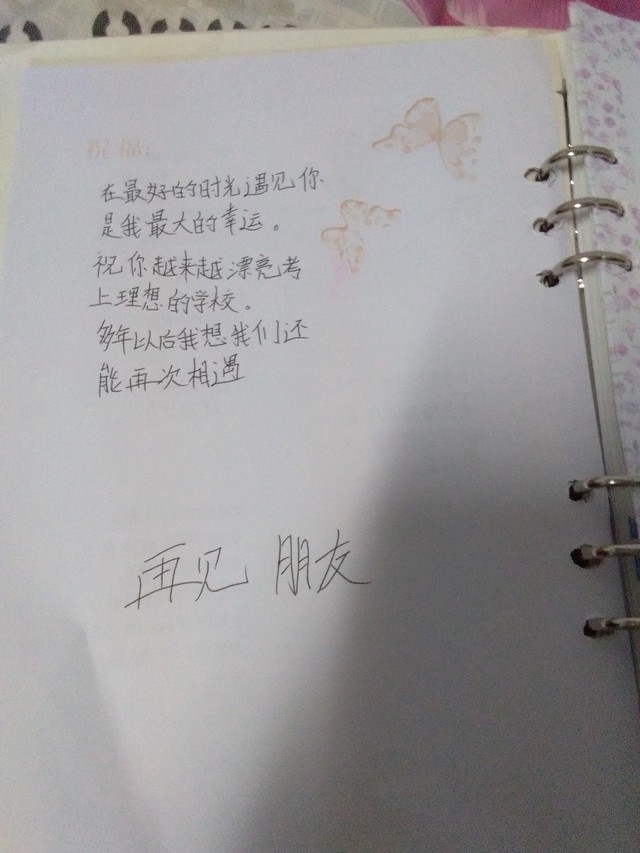 祝福:
在最好的时光遇见你
是我最大的幸运。
祝你越来越漂亮考
上理想的学校。
多年以后我想我们还
能再次相遇
再见 朋友